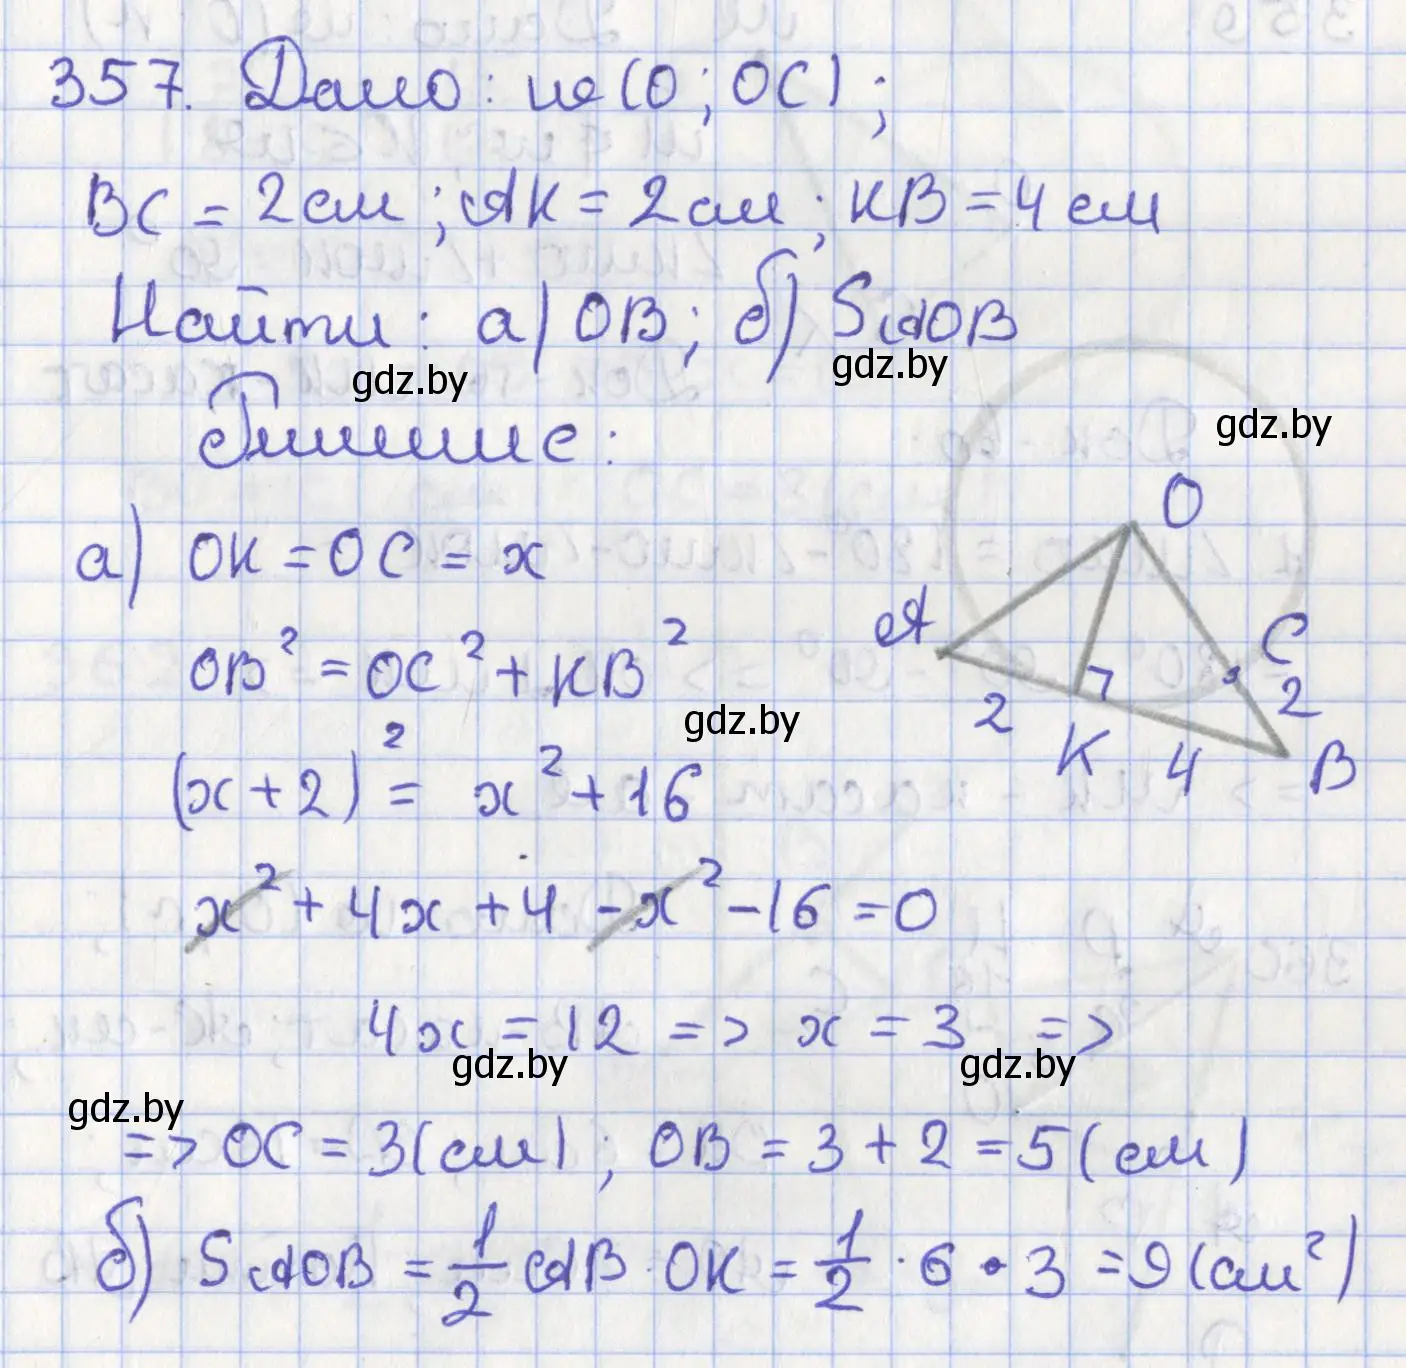 357. Дано: ω(O; OC);
BC = 2 см; AK = 2 см; KB = 4 см
Найти: а) OB; б) SAOB
gdz.by gdz.by
Решение:
gdz.by
а) OK = OC = x
OB² = OC² + KB²
gdz.by
(x + 2)² = x² + 16
x² + 4x + 4 - x² - 16 = 0
4x = 12 => x = 3 =>
gdz.by gdz.by
gdz.by
=> OC = 3 (см); OB = 3 + 2 = 5 (см)
б) SAOB = 1/2 AB · OK = 1/2 · 6 · 3 = 9 (см²)
O
A
C
2
2
K
4
B